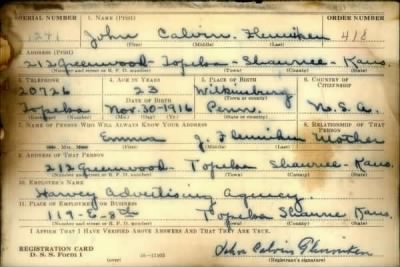 SERIAL NUMBER 1. NAME (Print) ORDER NUMBER
1241 John Calvin Fleniken 418
(First) (Middle) (Last)
2. ADDRESS (Print)
212 Greenwood - Topeka - Shawnee - Kans.
(Number and street or R. F. D. number) (Town) (County) (State)
3. TELEPHONE 4. AGE IN YEARS 5. PLACE OF BIRTH 6. COUNTRY OF CITIZENSHIP
20726 23 Wilkinsburg
DATE OF BIRTH (Town or county)
Topeka Nov. 30 - 1916 Penn. U.S.A.
7. NAME OF PERSON WHO WILL ALWAYS KNOW YOUR ADDRESS 8. RELATIONSHIP OF THAT PERSON
Emma J. Fleniken Mother
9. ADDRESS OF THAT PERSON
212 Greenwood - Topeka Shawnee - Kans.
(Number and street or R. F. D. number) (Town) (County) (State)
10. EMPLOYER'S NAME
Harvey Advertising Agency
11. PLACE OF EMPLOYMENT OR BUSINESS
119 - E - 8th Topeka Shawnee Kans.
(Number and street or R. F. D. number) (Town) (County) (State)
I AFFIRM THAT I HAVE VERIFIED ABOVE ANSWERS AND THAT THEY ARE TRUE.
REGISTRATION CARD
D. S. S. Form 1 John Calvin Fleniken
(Registrant's signature)